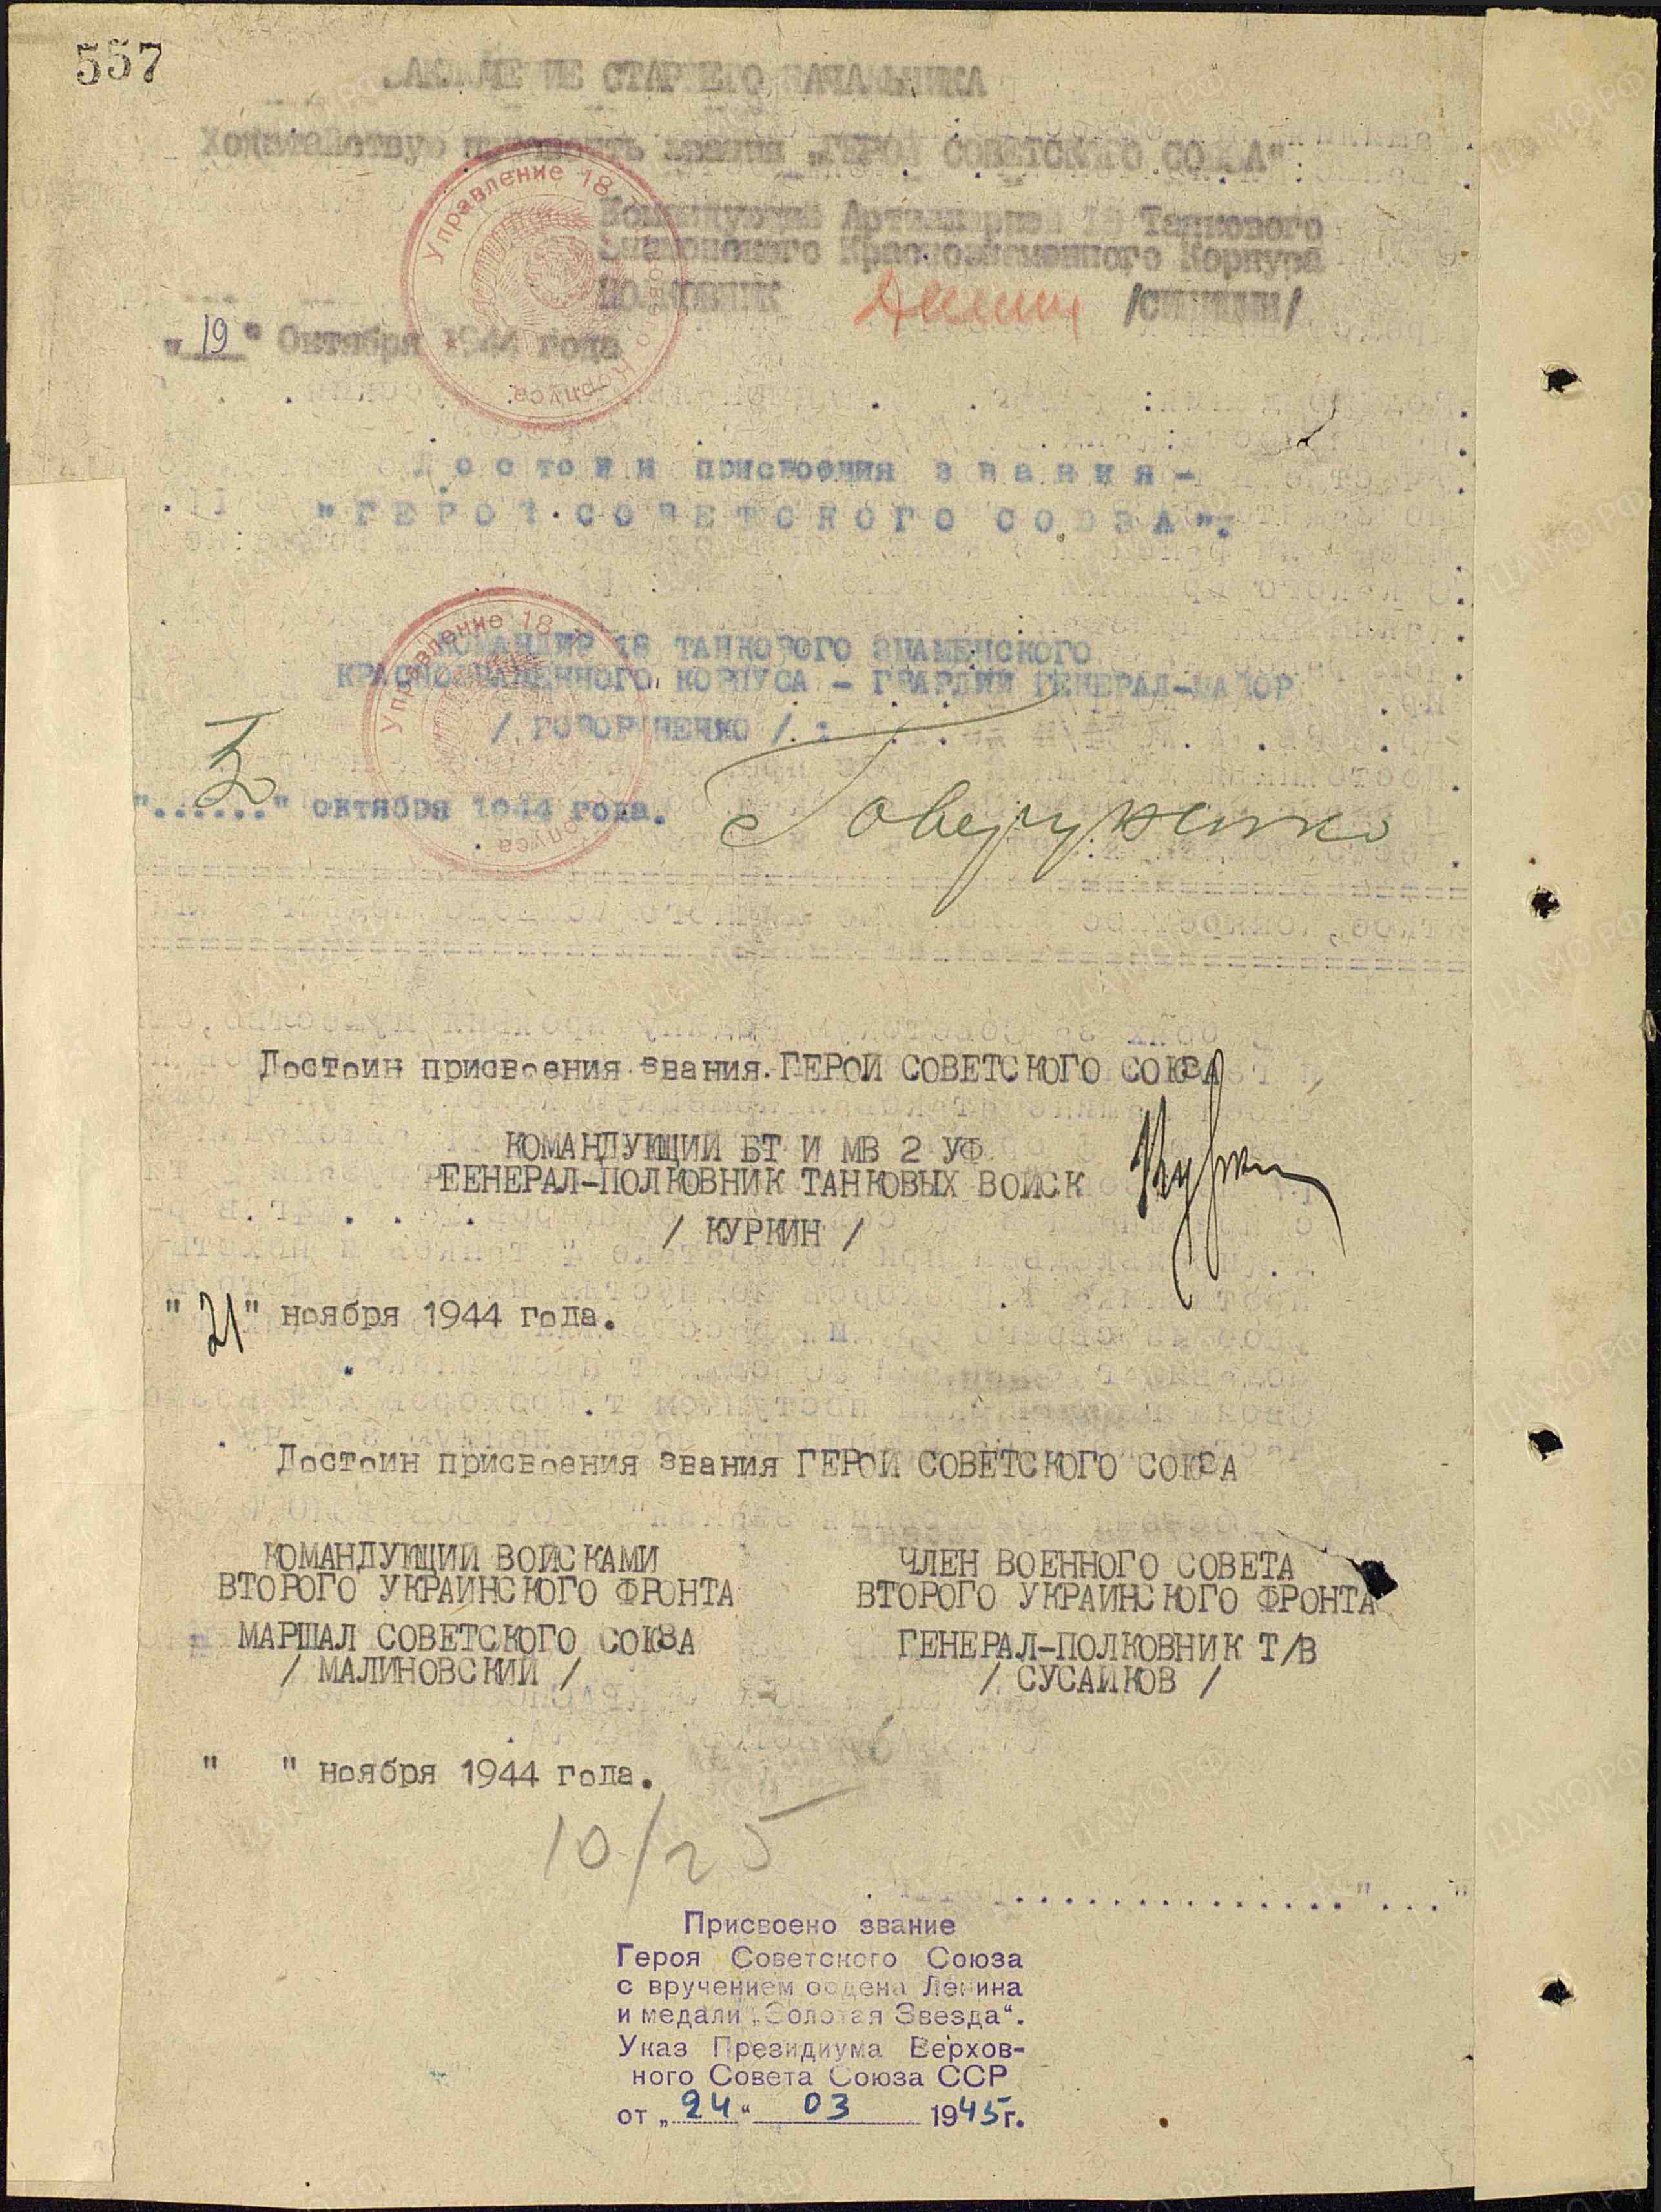 557
СТАРШЕГО НАЧАЛЬНИКА
Ходатайствую присвоить звания „ГЕРОЙ СОВЕТСКОГО СОЮЗА"
Командующий Артиллерией 18 Танкового
Знаменского Краснознаменного Корпуса
ПОЛКОВНИК
"19" Октября 1944 года
Достоин присвоения звания-
"ГЕРОЙ СОВЕТСКОГО СОЮЗА".
КОМАНДИР 18 ТАНКОВОГО ЗНАМЕНСКОГО
КРАСНОЗНАМЕННОГО КОРПУСА - ГВАРДИИ ГЕНЕРАЛ-МАЙОР
/ ГОВОРУНЕНКО / :
Говоруненко
"......" октября 1944 года.
Управление 18
Корпуса
Управление 18
Корпуса
Достоин присвоения звания ГЕРОЙ СОВЕТСКОГО СОЮЗА
КОМАНДУЮЩИЙ БТ И МВ 2 УФ
ГЕНЕРАЛ-ПОЛКОВНИК ТАНКОВЫХ ВОЙСК
/ КУРКИН /
Куркин
"21" ноября 1944 года.
Достоин присвоения звания ГЕРОЙ СОВЕТСКОГО СОЮЗА
КОМАНДУЮЩИЙ ВОЙСКАМИ
ВТОРОГО УКРАИНСКОГО ФРОНТА
МАРШАЛ СОВЕТСКОГО СОЮЗА
/ МАЛИНОВСКИЙ /
ЧЛЕН ВОЕННОГО СОВЕТА
ВТОРОГО УКРАИНСКОГО ФРОНТА
ГЕНЕРАЛ-ПОЛКОВНИК Т/В
/ СУСАЙКОВ /
" " ноября 1944 года.
10/25
Присвоено звание
Героя Советского Союза
с вручением ордена Ленина
и медали „Золотая Звезда“.
Указ Президиума Верхов-
ного Совета Союза ССР
от „24“ 03 1945г.
ЦАМО.РФ